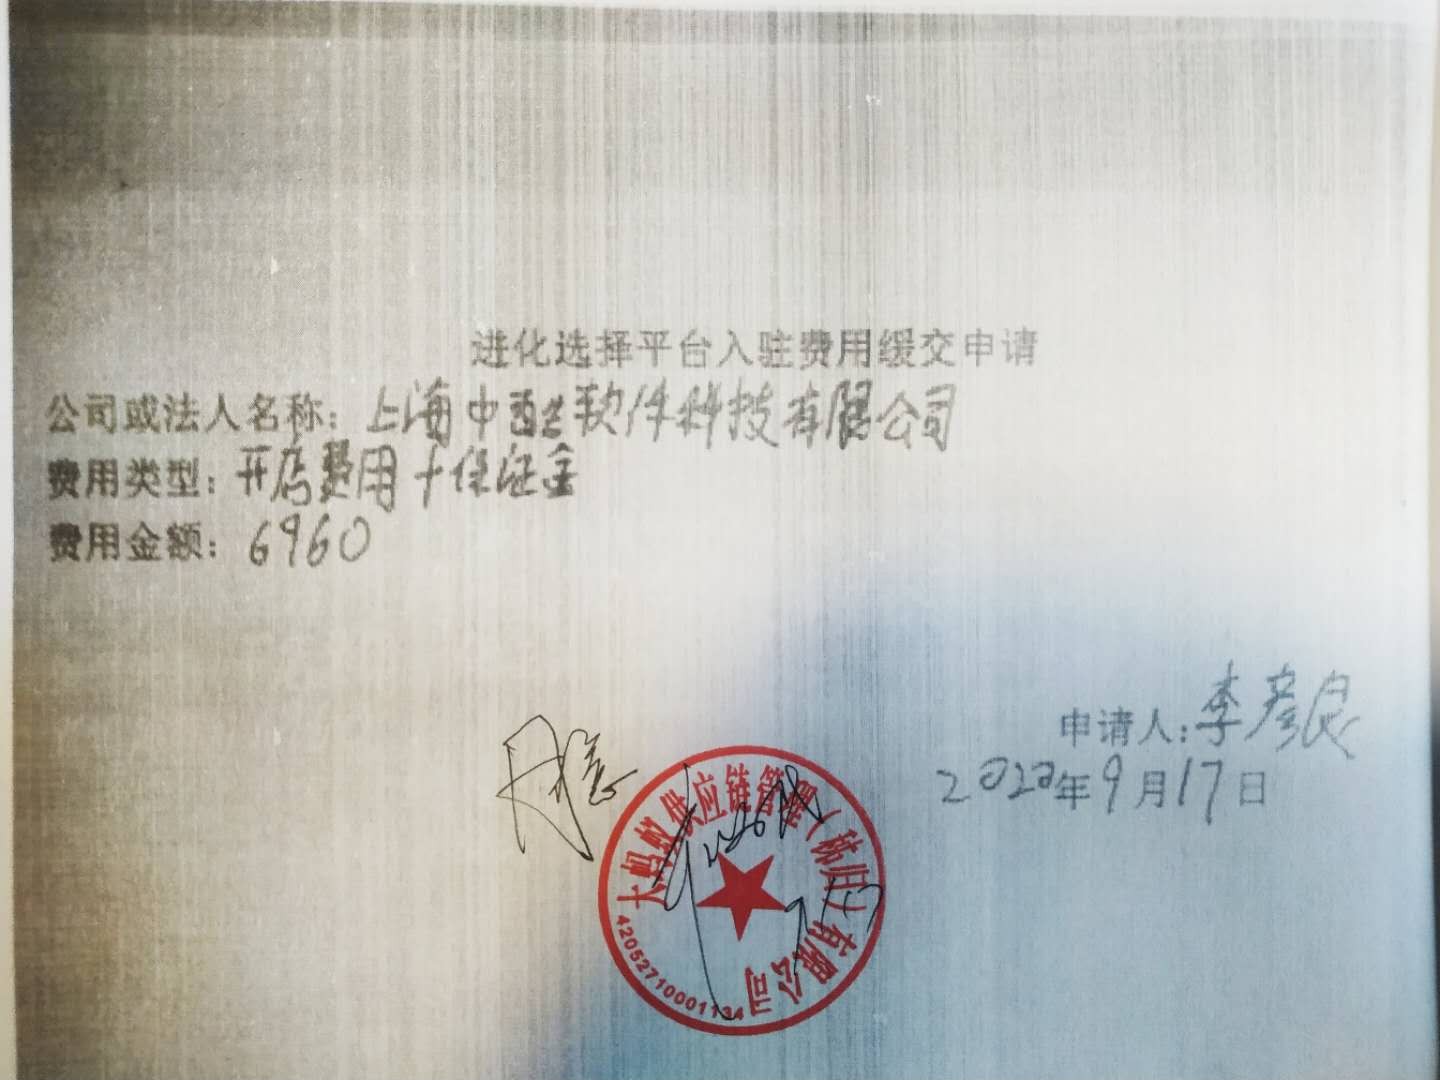 进化选择平台入驻费用缓交申请
公司或法人名称：上海中酷软件科技有限公司
费用类型：开店费用+保证金
费用金额：6960
申请人：李彦良
2020年9月17日
大蚂蚁供应链管理（秭归）有限公司
42052710001134